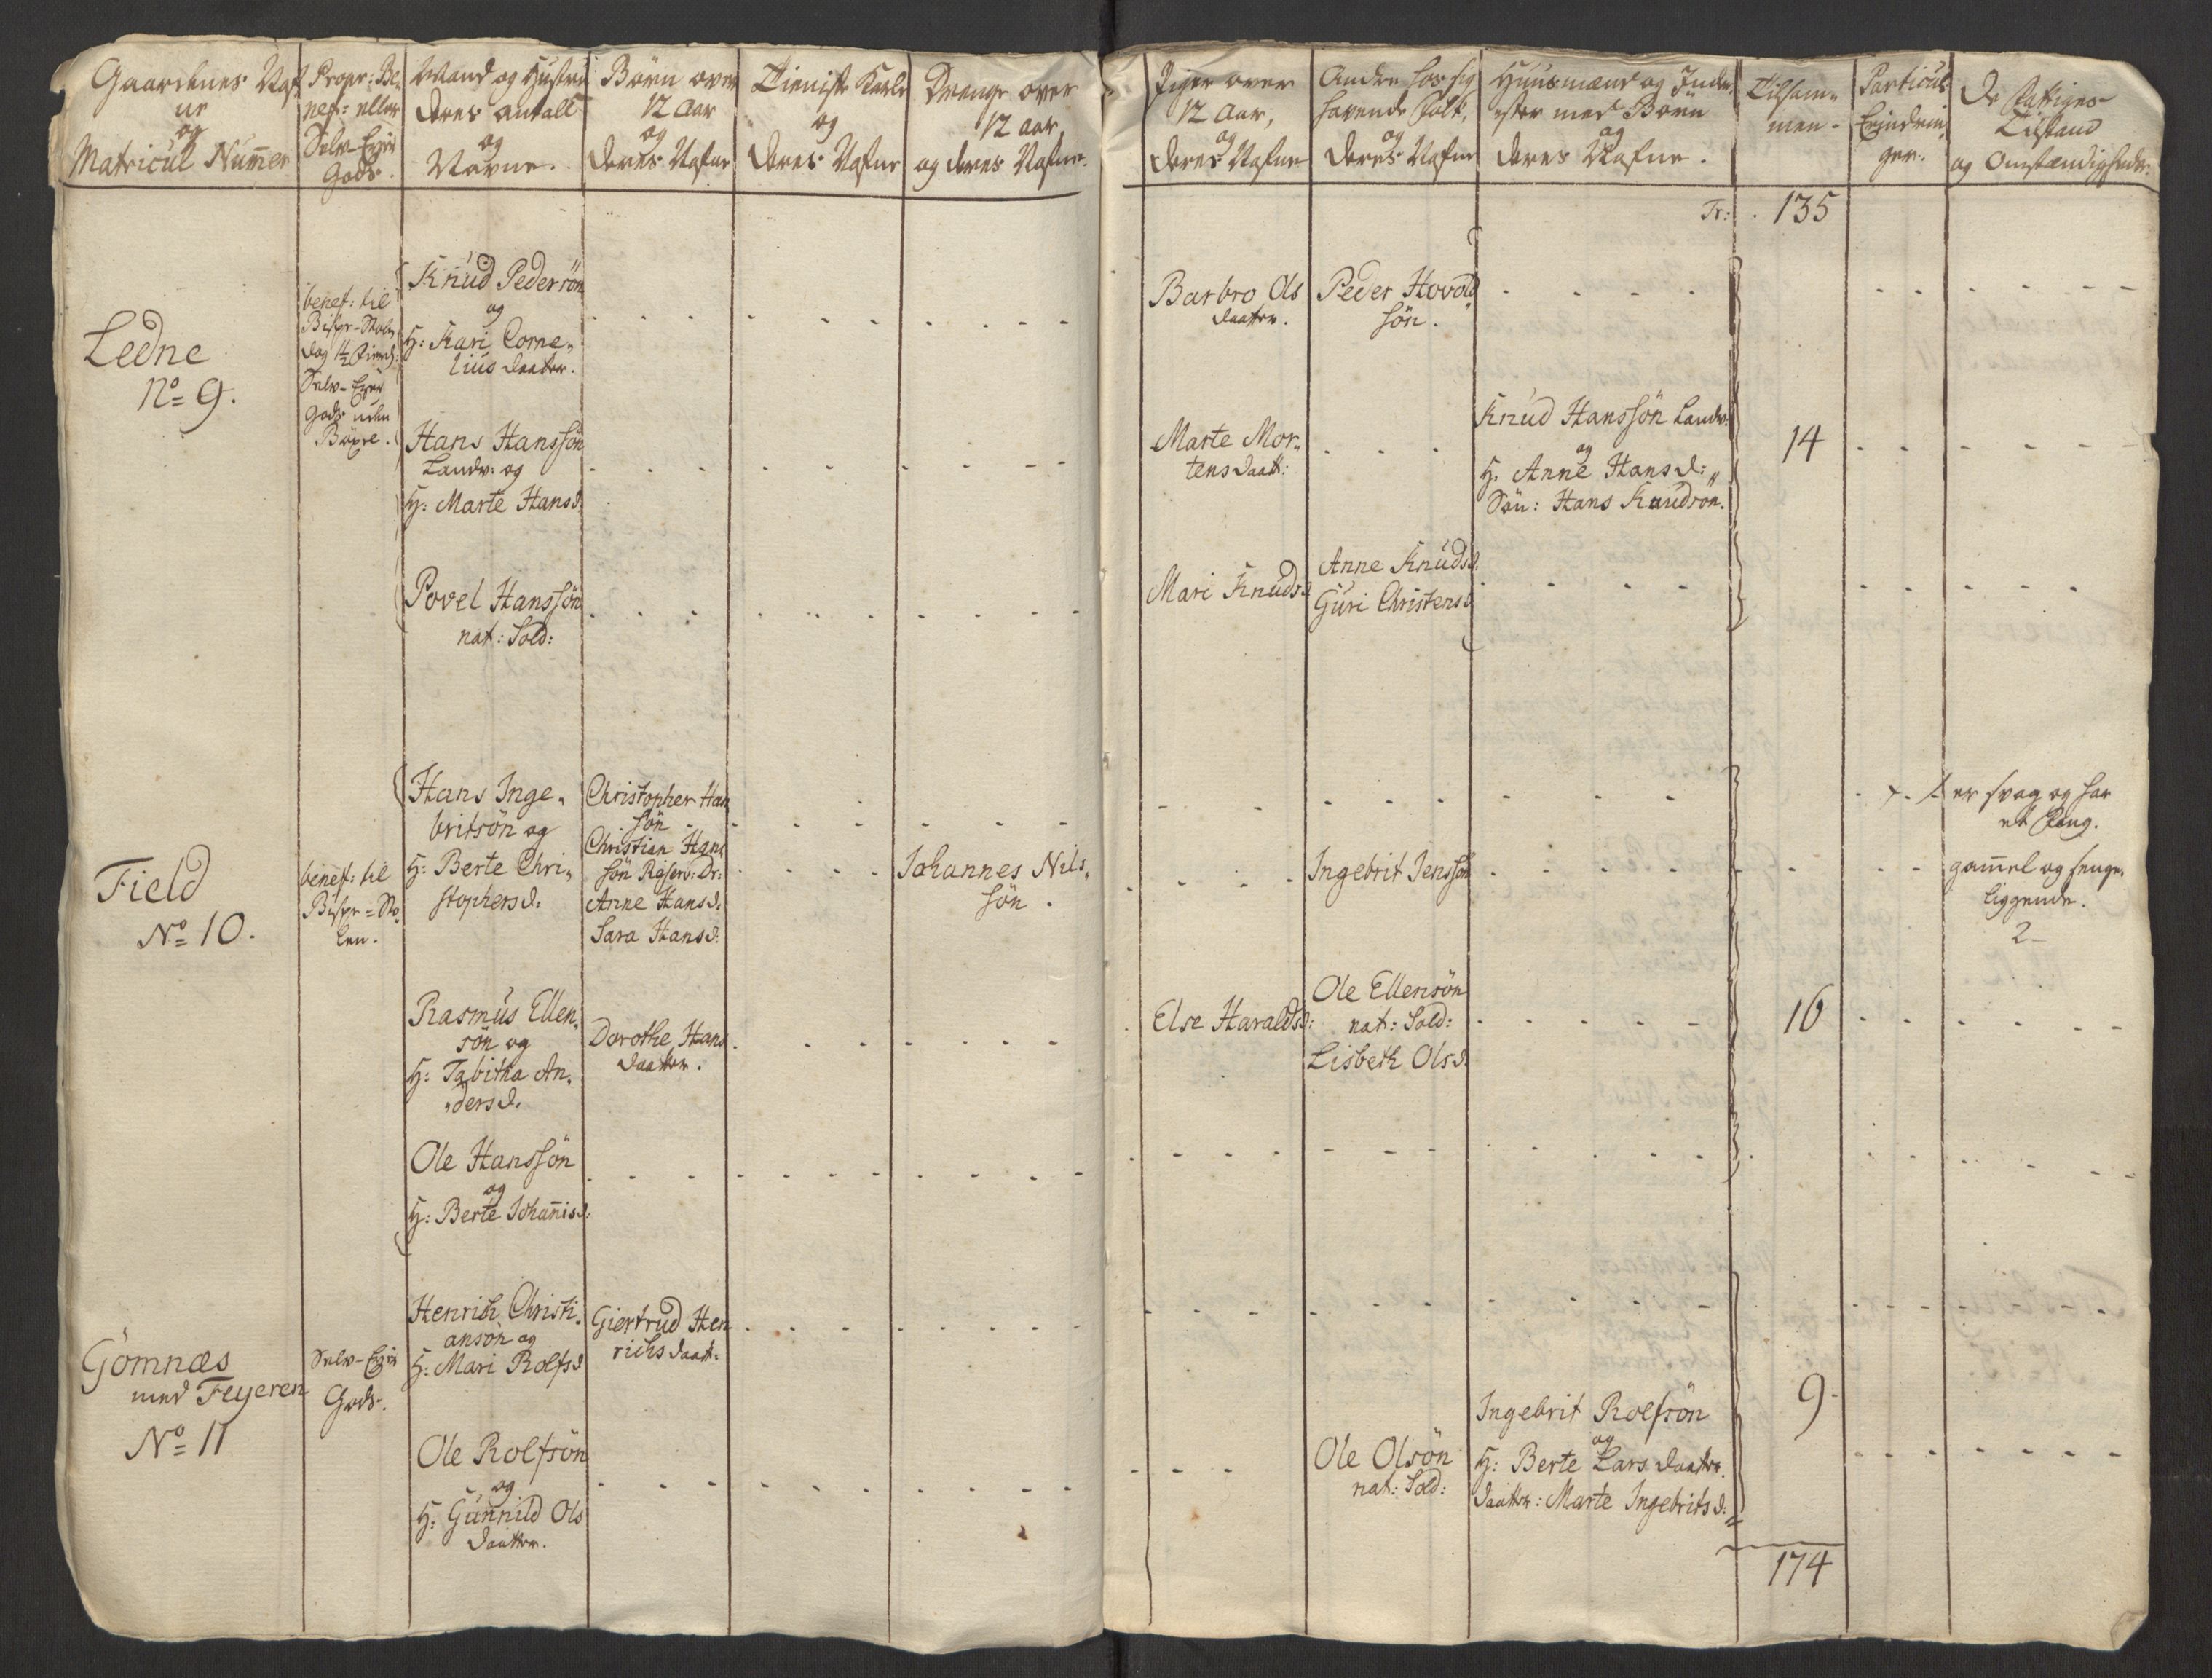 Gaardenes Naf
ne
og
Matricul Num̄er
Propr: Be-
nef: eller
Selv-Eyer
Gods.
Mand og Hustru
deres antall
og
Navne.
Börn over
12 Aar
og
deres Nafne
Tieniste Karle
og
deres Nafne
Drenge over
12 aar,
og deres Nafne.
Piger over
12 Aar,
og
deres Nafne
Andre hos sig
havende Folk,
og
deres Nafne
Huusmænd og Inder-
ster med Born
og
deres Nafne.
Tilsam-
men-
Particul:
Erindrin-
ger.
De Fattiges
Tilstand
og Omstændigheder.
Tr: 135
Ledne
No= 9.
benef: til
Bispe-Stolen
dog 1½ Fierd:
Selv-Eyer
Gods uden
Böxel.
Knud Pedersön
og
H: Kari Corne-
lius daatter.
Barbro Ols
daatter.
Peder Hovold
sön.
Hans Hanssön
Landv: og
H: Marte Hansd.
Marte Mor-
tens daatt:
Knud Hanssön Landv:
og
H. Anne Hansd:
Sön: Hans Knudsön.
14
Povel Hanssön
nat: Sold:
Mari Knudsd.
Anne Knudsd.
Guri Christensd
Field
No= 10.
benef: til
Bispe=Sto-
len.
Hans Inge-
britsön og
H: Berte Chri-
stophersd:
Christopher Han
sön
Christian Hans
sön Reserv: Dr:
Anne Hansd:
Sara Hansd:
Johannes Nils-
sön.
Ingebrit Jenssön
er svag og har
et Pleng.
gam̄el og senge-
liggende.
2-
Rasmus Ellen-
sön og
H: Tabitha An-
dersd.
Dorothe Hans
daatter.
Else Haraldsd:
Ole Ellensön
nat: Sold:
Lisbeth Olsd.
16
Ole Hanssön
og
H: Berte Johan̄isd:
Gomnæs
med Feyeren
No= 11
Selv-Eyer
Gods.
Henrich Christi-
ansön og
H: Mari Rolfsd
Giertrud Hen
richs daatt:
Ole Rolfsön
og
H: Gunnild Ols
daatter.
Ole Olsön
nat: Sold:
Ingebrit Rolfsön
og
H: Berte Lars daatter.
daatter: Marte Ingebritsd:
9-
174